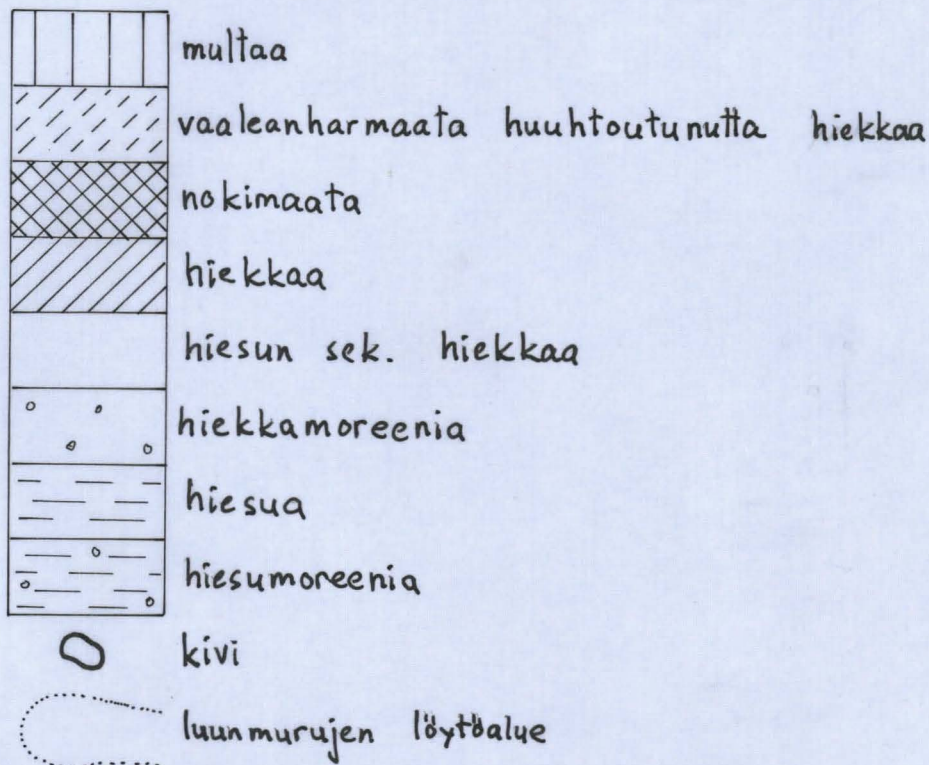 multaa
vaaleanharmaata huuhtoutunutta hiekkaa
nokimaata
hiekkaa
hiesun sek. hiekkaa
hiekkamoreenia
hiesua
hiesumoreenia
kivi
luunmurujen löytöalue